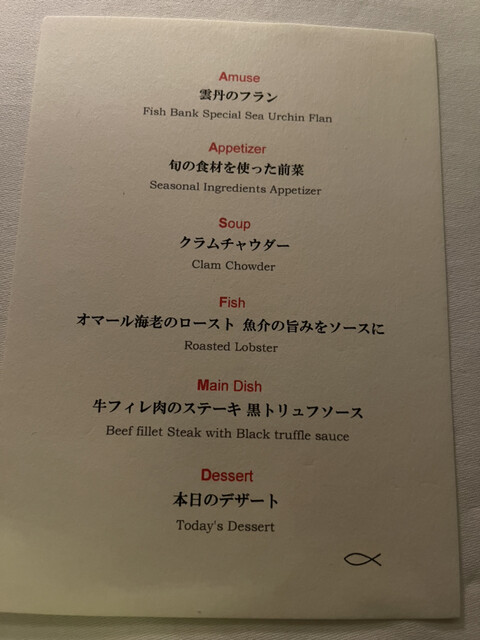 Amuse
雲丹のフラン
Fish Bank Special Sea Urchin Flan
Appetizer
旬の食材を使った前菜
Seasonal Ingredients Appetizer
Soup
クラムチャウダー
Clam Chowder
Fish
オマール海老のロースト 魚介の旨みをソースに
Roasted Lobster
Main Dish
牛フィレ肉のステーキ 黒トリュフソース
Beef fillet Steak with Black truffle sauce
Dessert
本日のデザート
Today's Dessert